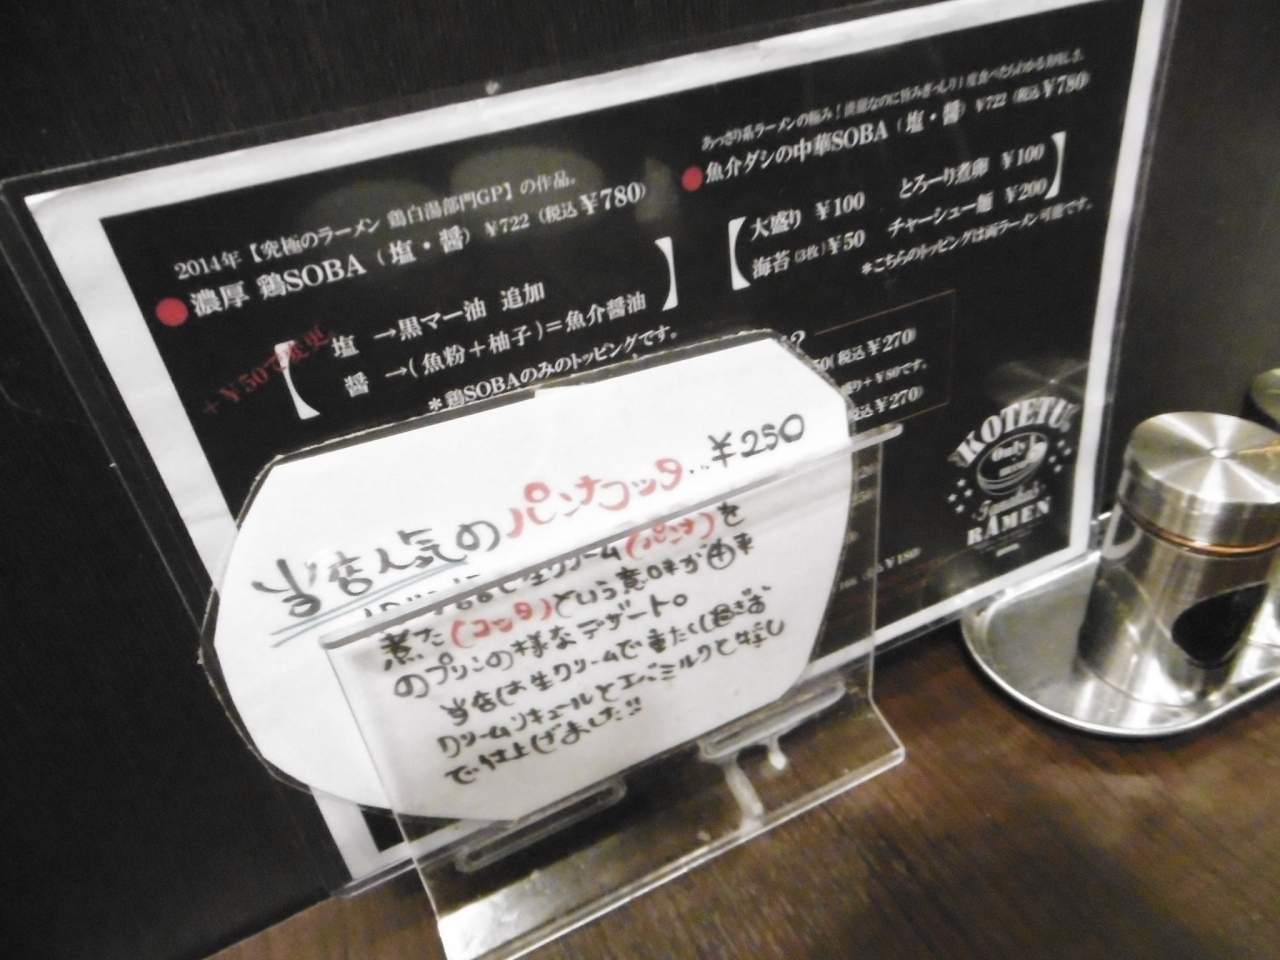 2014年【究極のラーメン 鶏白湯部門GP】の作品。
濃厚 鶏SOBA（塩・醤）￥722（税込￥780）
+￥50で変更。
塩 →黒マー油 追加
醤 →(魚粉＋柚子)＝魚介醤油
＊鶏SOBAのみのトッピングです。
あっさり系ラーメンの極み！淡麗なのに旨みぎっしり！度食べたらわかる美味しさ。
魚介ダシの中華SOBA（塩・醤）￥722（税込￥780）
大盛り ￥100 とろーり煮卵 ￥100
海苔(3枚)￥50 チャーシュー麺 ￥200
＊こちらのトッピングは両ラーメン可能です。
(税込￥270)
盛り+￥80です。
税込￥270)
￥180
KOTETU
Only
RAMEN
当店人気のパンナコッタ...￥250
生クリーム(パンナ)を
煮た(コッタ)という意味が由来
のプリンの様なデザート。
当店は生クリームで重たくし過ぎず
クリームリキュールとエバミルクと
で仕上げました!!